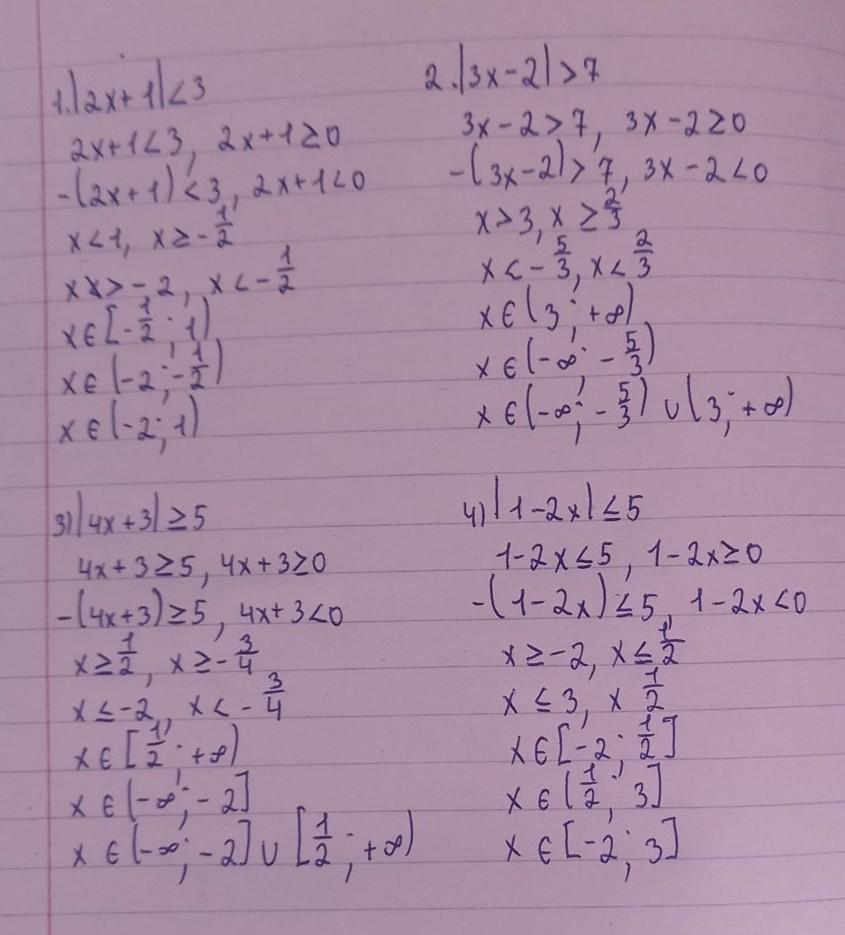 1.|2x+1|<3
2x+1<3, 2x+1≥0
-(2x+1)<3, 2x+1<0
x<1, x≥-1/2
x x>-2, x<-1/2
x∈[-1/2; 1)
x∈(-2; -1/2)
x∈(-2; 1)
2.|3x-2|>7
3x-2>7, 3x-2≥0
-(3x-2)>7, 3x-2<0
x>3, x≥2/3
x<-5/3, x<2/3
x∈(3; +∞)
x∈(-∞; -5/3)
x∈(-∞; -5/3)∪(3; +∞)
3)|4x+3|≥5
4x+3≥5, 4x+3≥0
-(4x+3)≥5, 4x+3<0
x≥1/2, x≥-3/4
x≤-2, x<-3/4
x∈[1/2; +∞)
x∈(-∞; -2]
x∈(-∞; -2]∪[1/2; +∞)
4)|1-2x|≤5
1-2x≤5, 1-2x≥0
-(1-2x)≤5, 1-2x<0
x≥-2, x≤1/2
x≤3, x 1/2
x∈[-2; 1/2]
x∈(1/2; 3]
x∈[-2; 3]